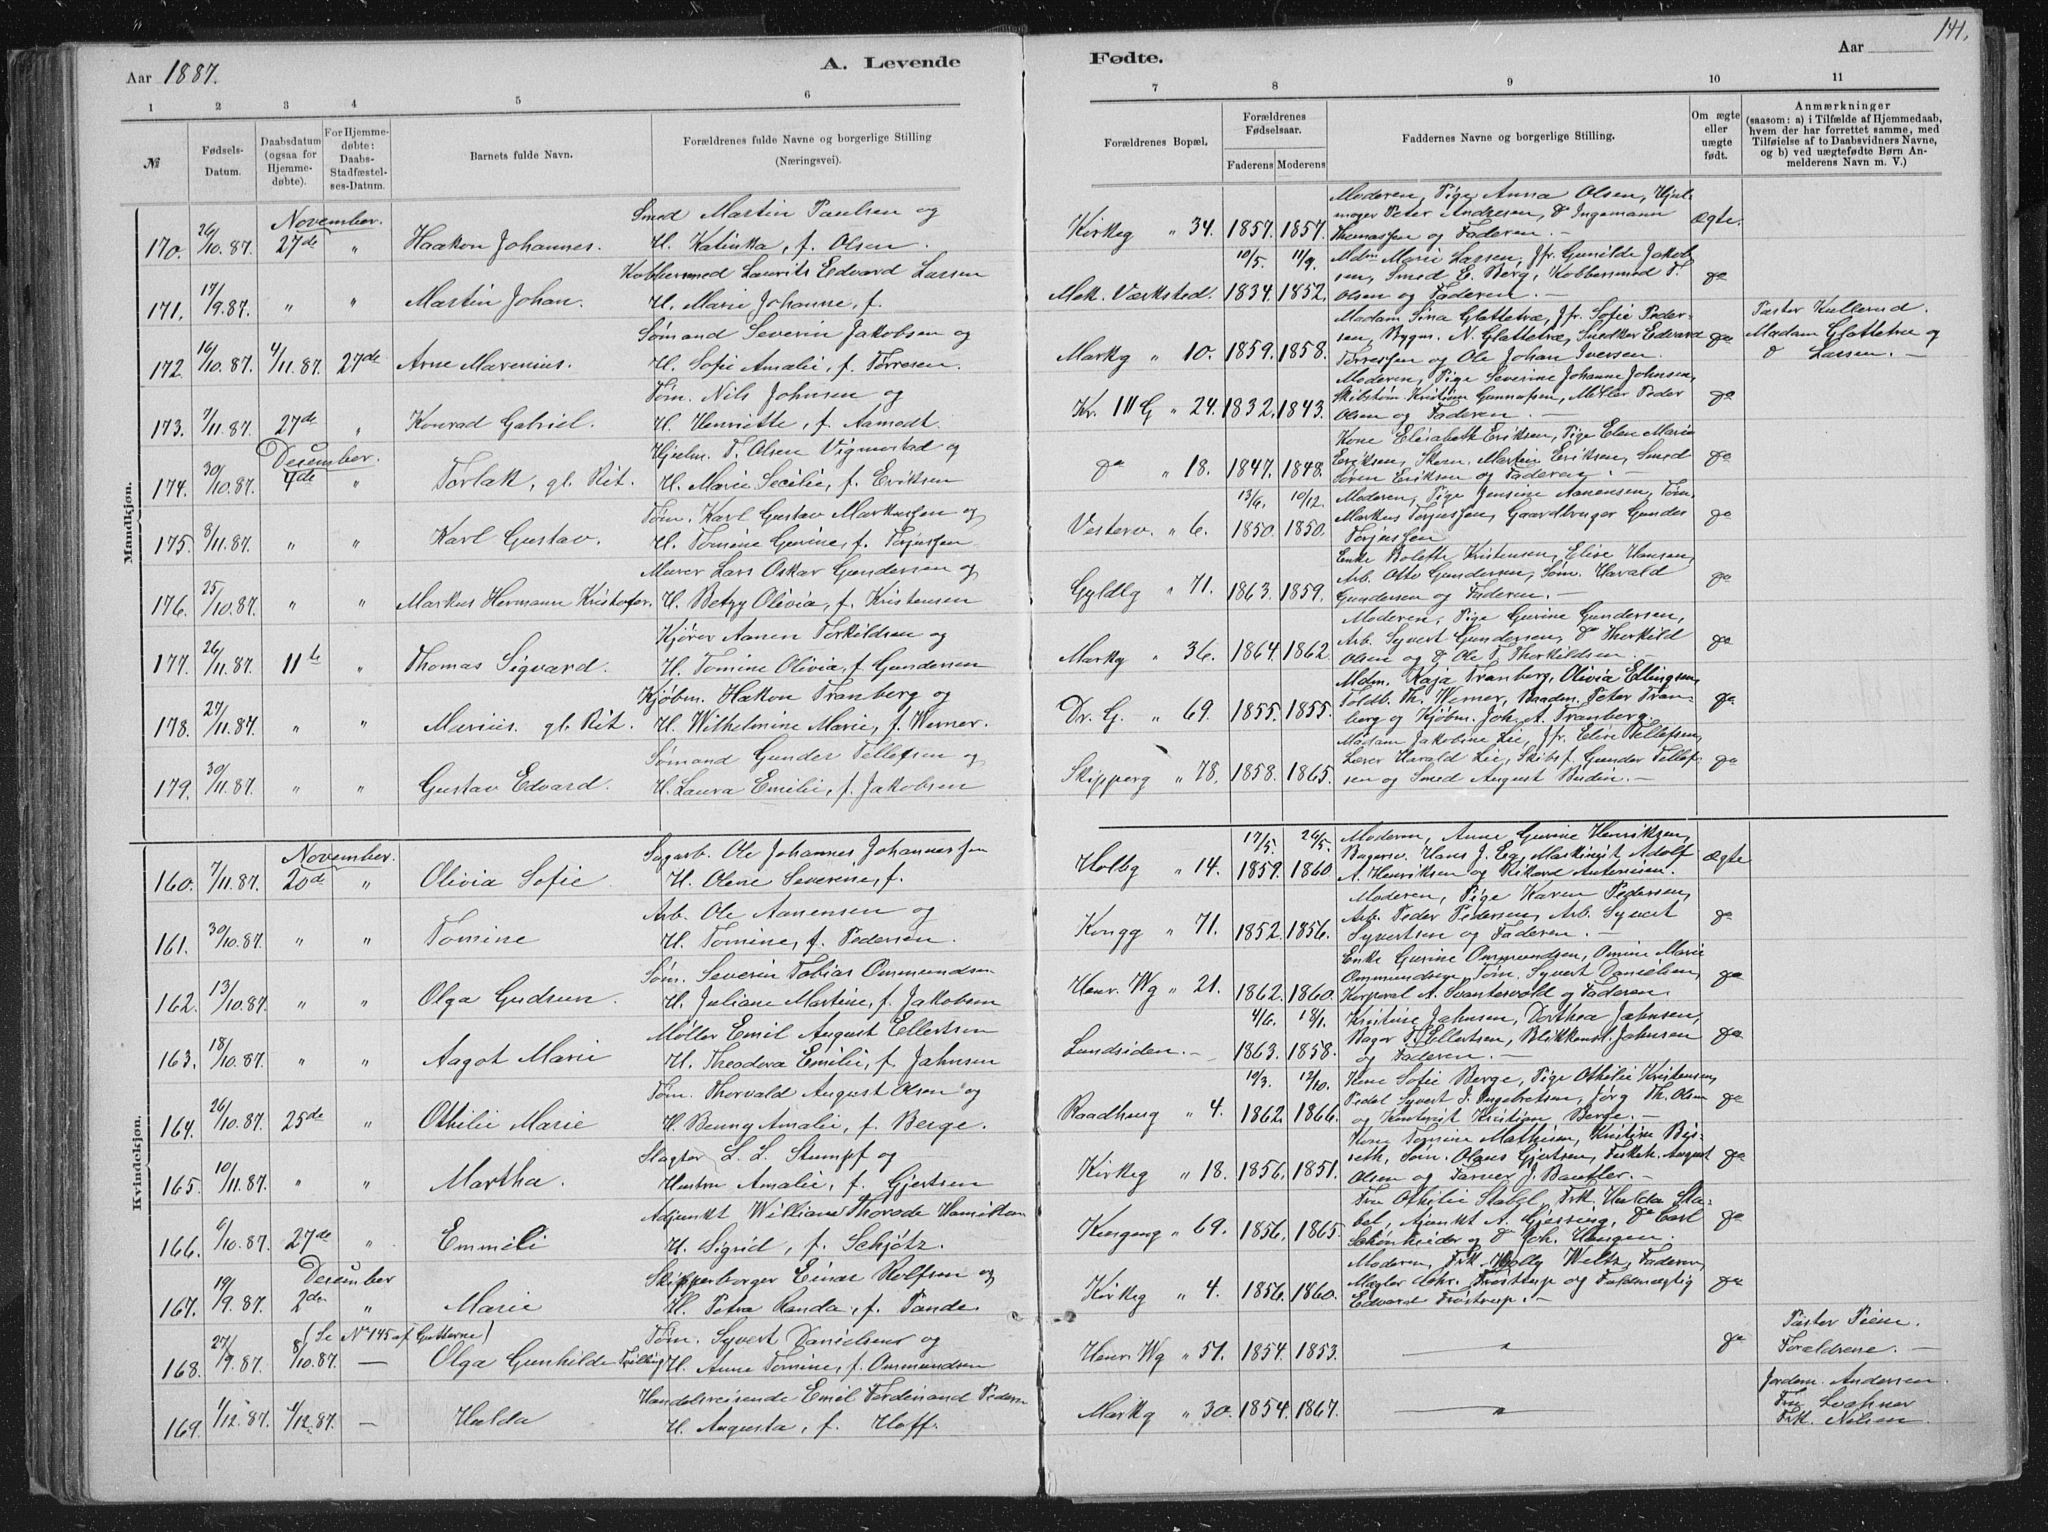 Aar 1887.
A. Levende
Fødte.
Aar
141.
1 2 3 4 5 6 7 8 9 10 11
№
Fødsels-Datum.
Daabsdatum (ogsaa for Hjemmedøbte).
For Hjemmedøbte: Daabs-Stadfæstelses-Datum.
Barnets fulde Navn.
Forældrenes fulde Navne og borgerlige Stilling
(Næringsvei).
Forældrenes Bopæl.
Forældrenes Fødselsaar.
Faderens Moderens
Faddernes Navne og borgerlige Stilling.
Om ægte eller uægte født.
Anmærkninger
(saasom: a) i Tilfælde af Hjemmedaab,
hvem der har forrettet samme, med
Tilføielse af to Daabsvidners Navne,
og b) ved uægtefødte Børn Anmelderens Navn m. V.)
Mandkjøn.
November.
Smed Martin Paulsen og
Moderen, Pige Anna Olsen, Hjul-
mager Peter Andresen, do Ingemann
170. 26/10.87. 27de " Haakon Johannes. H. Katinka, f. Olsen. Kirkeg " 34. 1857. 1857. Thomassen og Faderen. — Ægte.
Kobbersmed Laurits Edvard Larsen 10/5. 11/9. Mdm Marie Larsen, Jfr. Gunilde Jakob-
sen, Smed E. Berg, Kobbersmed T.
171. 17/9.87. " " Martin Johan. H. Marie Johanne, f. Mek. Værksted. 1834. 1852. Olsen og Faderen. — do
Sømand Severin Jakobsen og
Madam Sina Glattetræ, Jfr. Sofie Peder-
sen, Bygm. N. Glattetræ, Snedker Edvard
172. 16/10.87. 4/11.87. 27de Arne Marenius. H. Sofie Amalie, f. Torresen. Markg " 10. 1859. 1858. Torressen og Ole Johan Iversen. do
Pastor Kullerud.
Madam Glattetræ og
do Larsen. —
Tøm. Nils Johnsen og
Moderen, Pige Severine Johanne Johnsen,
Skibstøm. Kristian Gunnufsen, Møller Peder
173. 7/11.87. 27de " Konrad Gabriel. H. Henriette, f. Aamodt. Kr. III G " 24. 1832. 1843. Olsen og Faderen. — do
December.
Hjulm. T. Olsen Vigmostad og
Kone Elisabeth Eriksen, Pige Elen Marie
Eriksen, Skom. Martin Eriksen, Smed
174. 30/10.87. 4de " Torlak, gl. Rit. H. Marie Secilie, f. Eriksen do " 18. 1847. 1848. Søren Eriksen og Faderen. do
Tøm. Karl Gustav Markussen og 13/6. 10/12. Moderen, Pige Jensine Aanensen, Tøm.
Markus Torjussen, Gaardbruger Gunder
175. 8/11.87. " " Karl Gustav. H. Tomine Gurine, f. Torjussen Vesterv. " 6. 1850. 1850. Torjussen do
Murer Lars Oskar Gundersen og
Enke Bolette Kristensen, Elise Hansen,
Arb. Otto Gundersen, Søm. Harald
176. 25/10.87. " " Markus Hermann Kristofer. H. Betzy Olivia, f. Kristensen Gyldlg " 71. 1863. 1859. Gundersen og Faderen. — do
Kjører Aanen Torkildsen og
Moderen, Pige Gurine Gundersen,
Arb. Syvert Gundersen, do Thorkild
177. 26/11.87. 11te " Thomas Sigvard. H. Tomine Olivia, f. Gundersen Markg " 36. 1864. 1862. Olsen og do Ole T. Thorkildsen. — do
Kjøbm. Hakon Tranberg og
Mdm. Kaja Tranberg, Olivia Ellingsen,
Toldb. Th. Werner, Peter Tran-
178. 27/11.87. " " Marius. gl. Rit. H. Wilhelmine Marie, f. Werner. Dr. G. " 69. 1855. 1855. berg og Kjøbm. Joh. A. Tranberg. do
Sømand Gunder Tellefsen og
Madam Jakobine Lie, Jfr. Elise Tellefsen,
Lærer Harald Lie, Skibsf. Gunder Tellef-
179. 30/11.87. " " Gustav Edvard. H. Laura Emilie, f. Jakobsen Skipperg " 78. 1858. 1865. sen og Smed August Budin. — do
Kvindekjøn.
November.
Sagarb. Ole Johannes Johannessen 17/5. 26/5. Moderen, Anne Gurine Henriksen,
Bagersv. Hans J. Eg, Maskinist Adolf
160. 7/11.87. 20de " Olivia Sofie H. Olene Severene, f. Holbg " 14. 1859. 1860. A. Henriksen og Rikard Antonisen. Ægte
Arb. Ole Aanensen og
Moderen, Pige Karen Pedersen,
Arb. Peder Pedersen, Arb. Syvert
161. 30/10.87. " " Tomine H. Tomine, f. Pedersen. Kongg " 71. 1852. 1856. Syvertsen og Faderen. — do
Søm. Severin Tobias Ommundsen
Enke Gurine Ommundsen, Omine Marie
Ommundsen, Tøm. Syvert Danielsen,
162. 13/10.87. " " Olga Gudrun. H. Juliane Martine, f. Jakobsen Henr. Wg " 21. 1862. 1860. Korporal A. Svantesvold og Faderen. do
Møller Emil August Ellertsen 4/6. 18/1. Kristine Jahnsen, Dorthea Jahnsen,
Bager T. Ellertsen, Blikkensl. Jahnsen
163. 18/10.87. " " Aagot Marie H. Theodora Emilie, f. Jahnsen Lundsiden. — 1863. 1858. og Faderen. — do
Tøm. Thorvald August Olsen og 10/3. 12/10. Kone Sofie Berge, Pige Othilie Kristensen,
Pedel Syvert J. Ingebretsen, Jørg. Th. Olsen
164. 26/10.87. 25de " Othilie Marie H. Benny Amalie, f. Berge. Raadhusg " 4. 1862. 1866. og Kontorist Kristian Berge. — do
Slagter L. L. Stumpf og
Kone Tomine Mathisen, Kristine Bis-
seth, Søm. Olaus Gjertsen, Fiskeh. August
165. 10/11.87. " " Martha. Hustru Amalie, f. Gjertsen Kirkeg " 18. 1856. 1851. Olsen og Farver J. Bautler. do
Adjunkt William Thorvade Hamilton
Fru Othilie Stabel, Frk. Hulda Sta-
bel, Adjunkt A. Gjessing, do Carl
166. 6/10.87. 27de " Emmili H. Sigrid, f. Schjøtz. Kongeng " 69. 1856. 1865. Schønheider og do Joh. Haugen. do
December
Skipperborger Einar Rolfsen og
Moderen, Frk. Molly Weltz, Faderen,
Mægler Chr. Frøstrup og Fuldmægtig
167. 19/9.87. 2den " Marie H. Petra Randa, f. Pande. Kirkeg " 4. 1856. 1860. Edvard Frøstrup. — do
(Se No 145 af Gutterne)
Tøm. Syvert Danielsen og
Pastor Piene.
168. 27/9.87. 8/10.87. — Olga Gunhilde Tvilling H. Anne Tomine, f. Ommundsen Henr. Wg " 51. 1854. 1853. " do Forældrene. —
Handelsreisende Emil Ferdinand Pedersen
Jordem. Andersen.
Fru Lochner
169. 1/12.87. 4/12.87. — Hulda H. Augusta, f. Hoff. Markg " 30. 1854. 1867. " Frk. Nilsen